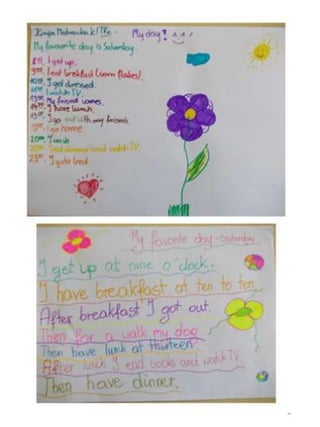 Kinga My day!
My favourite day is Saturday.
I get up.
I eat breakfast (corn flakes).
I get dressed.
I watch TV.
My friend comes.
I have lunch.
I go out with my friends.
I go home.
I wash
eat dinner and watch TV.
I go to bed
My favorite day - Saturday
I get up at nine o'clock.
I have breakfast at ten to ten
After breakfast I got out.
Then for a walk my dog
Then have lunch at thirteen.
After lunch I read books and watch TV.
Then have dinner.